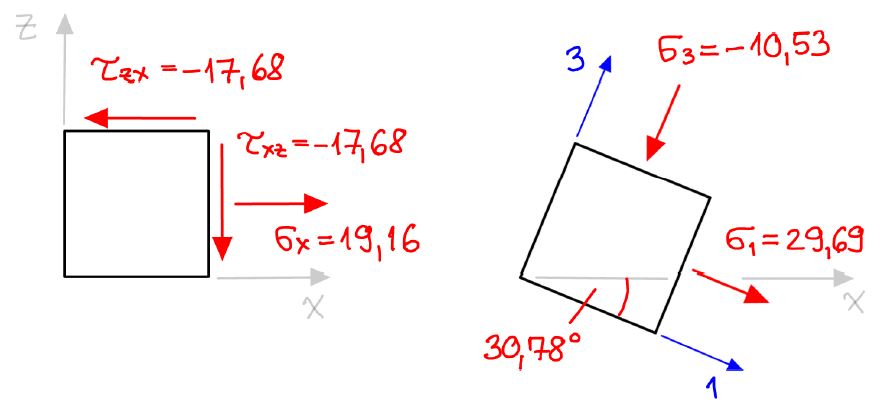 z
τzx = -17,68
τxz = -17,68
σx = 19,16
x
3
σ3 = -10,53
σ1 = 29,69
x
30,78°
1